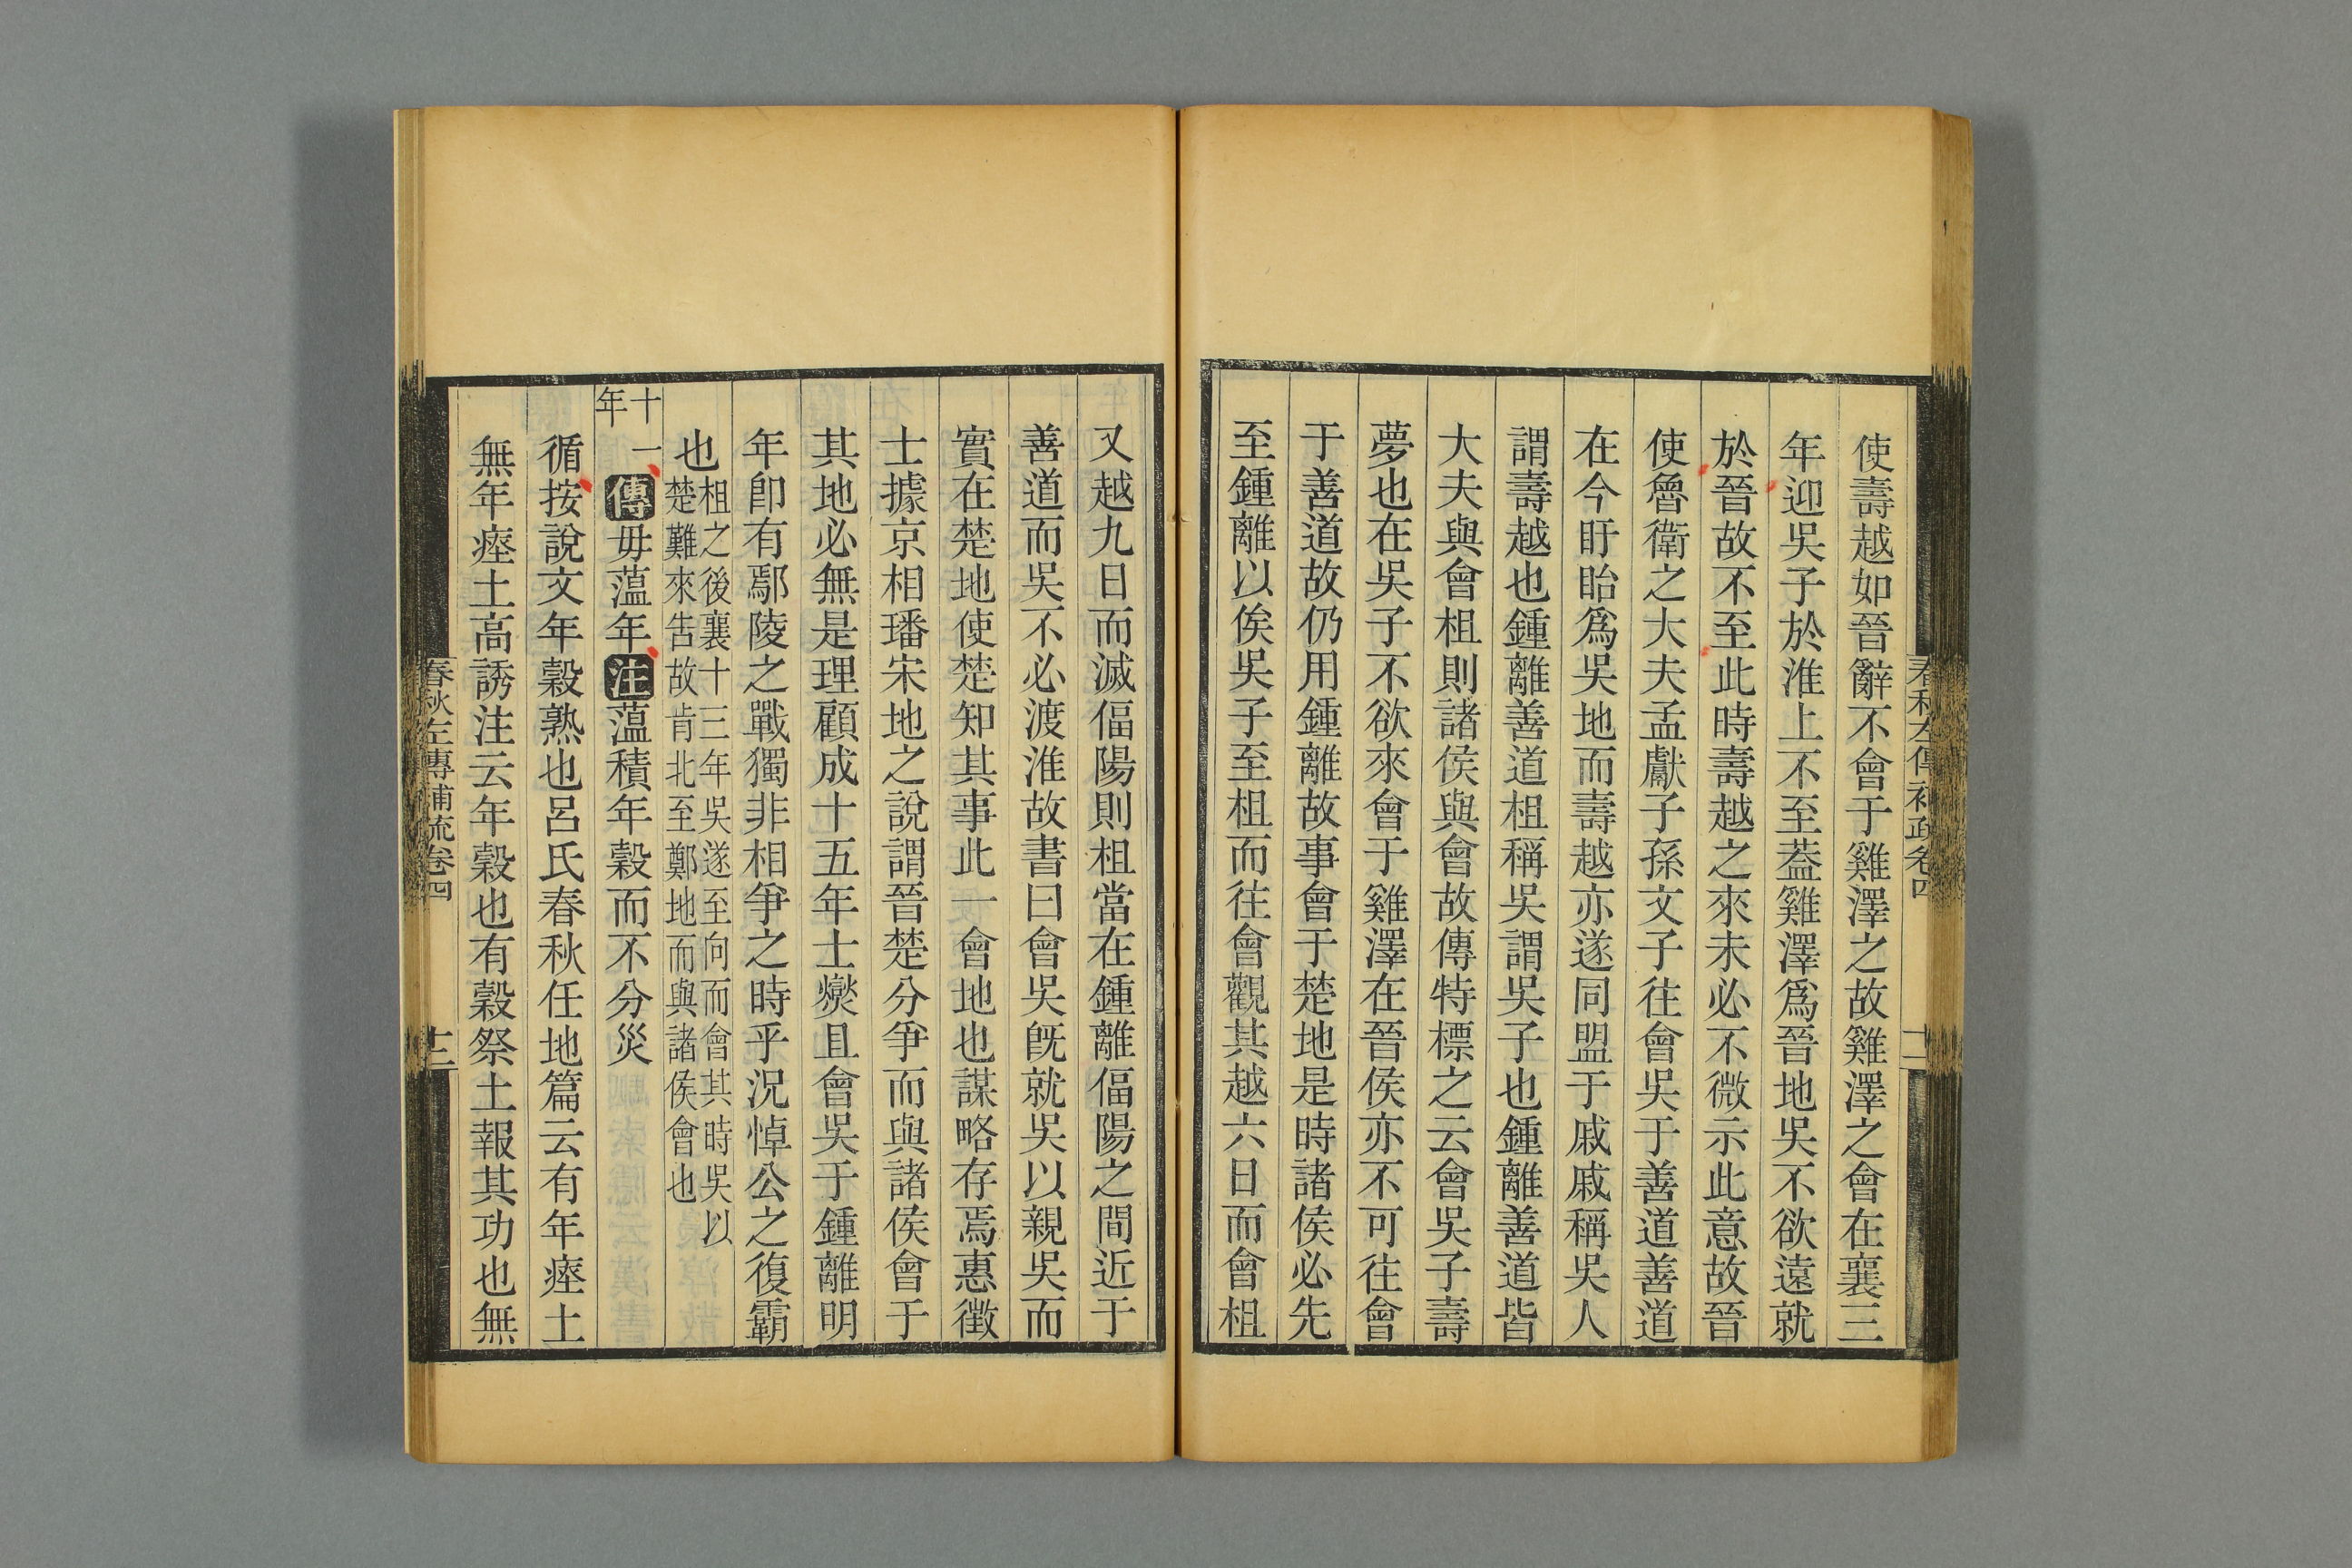 使壽越如晉辭不會于雞澤之故雞澤之會在襄三
年迎吳子於淮上不至葢雞澤爲晉地吳不欲遠就
於晉故不至此時壽越之來未必不微示此意故晉
使魯衛之大夫孟獻子孫文子往會吳于善道善道
在今盱眙爲吳地而壽越亦遂同盟于戚戚稱吳人
謂壽越也鍾離善道柤稱吳謂吳子也鍾離善道皆
大夫與會柤則諸侯與會故傳特標之云會吳子壽
夢也在吳子不欲來會于雞澤在晉侯亦不可往會
于善道故仍用鍾離故事會于楚地是時諸侯必先
至鍾離以俟吳子至柤而往會觀其越六日而會柤
又越九日而滅偪陽則柤當在鍾離偪陽之間近于
善道而吳不必渡淮故書曰會吳旣就吳以親吳而
實在楚地使楚知其事此一會地也謀略存焉惠徵
士據京相璠宋地之說謂晉楚分爭而與諸侯會于
其地必無是理顧成十五年士燮且會吳于鍾離明
年卽有鄢陵之戰獨非相爭之時乎況悼公之復霸
也柤之後襄十三年吳遂至向而會其時吳以
楚難來告故肯北至鄭地而與諸侯會也
十一年傳毋薀年注薀積年穀而不分災
循按說文年穀熟也呂氏春秋任地篇云有年瘞土
無年瘞土高誘注云年穀也有穀祭土報其功也無
春秋左傳補疏卷四
十二